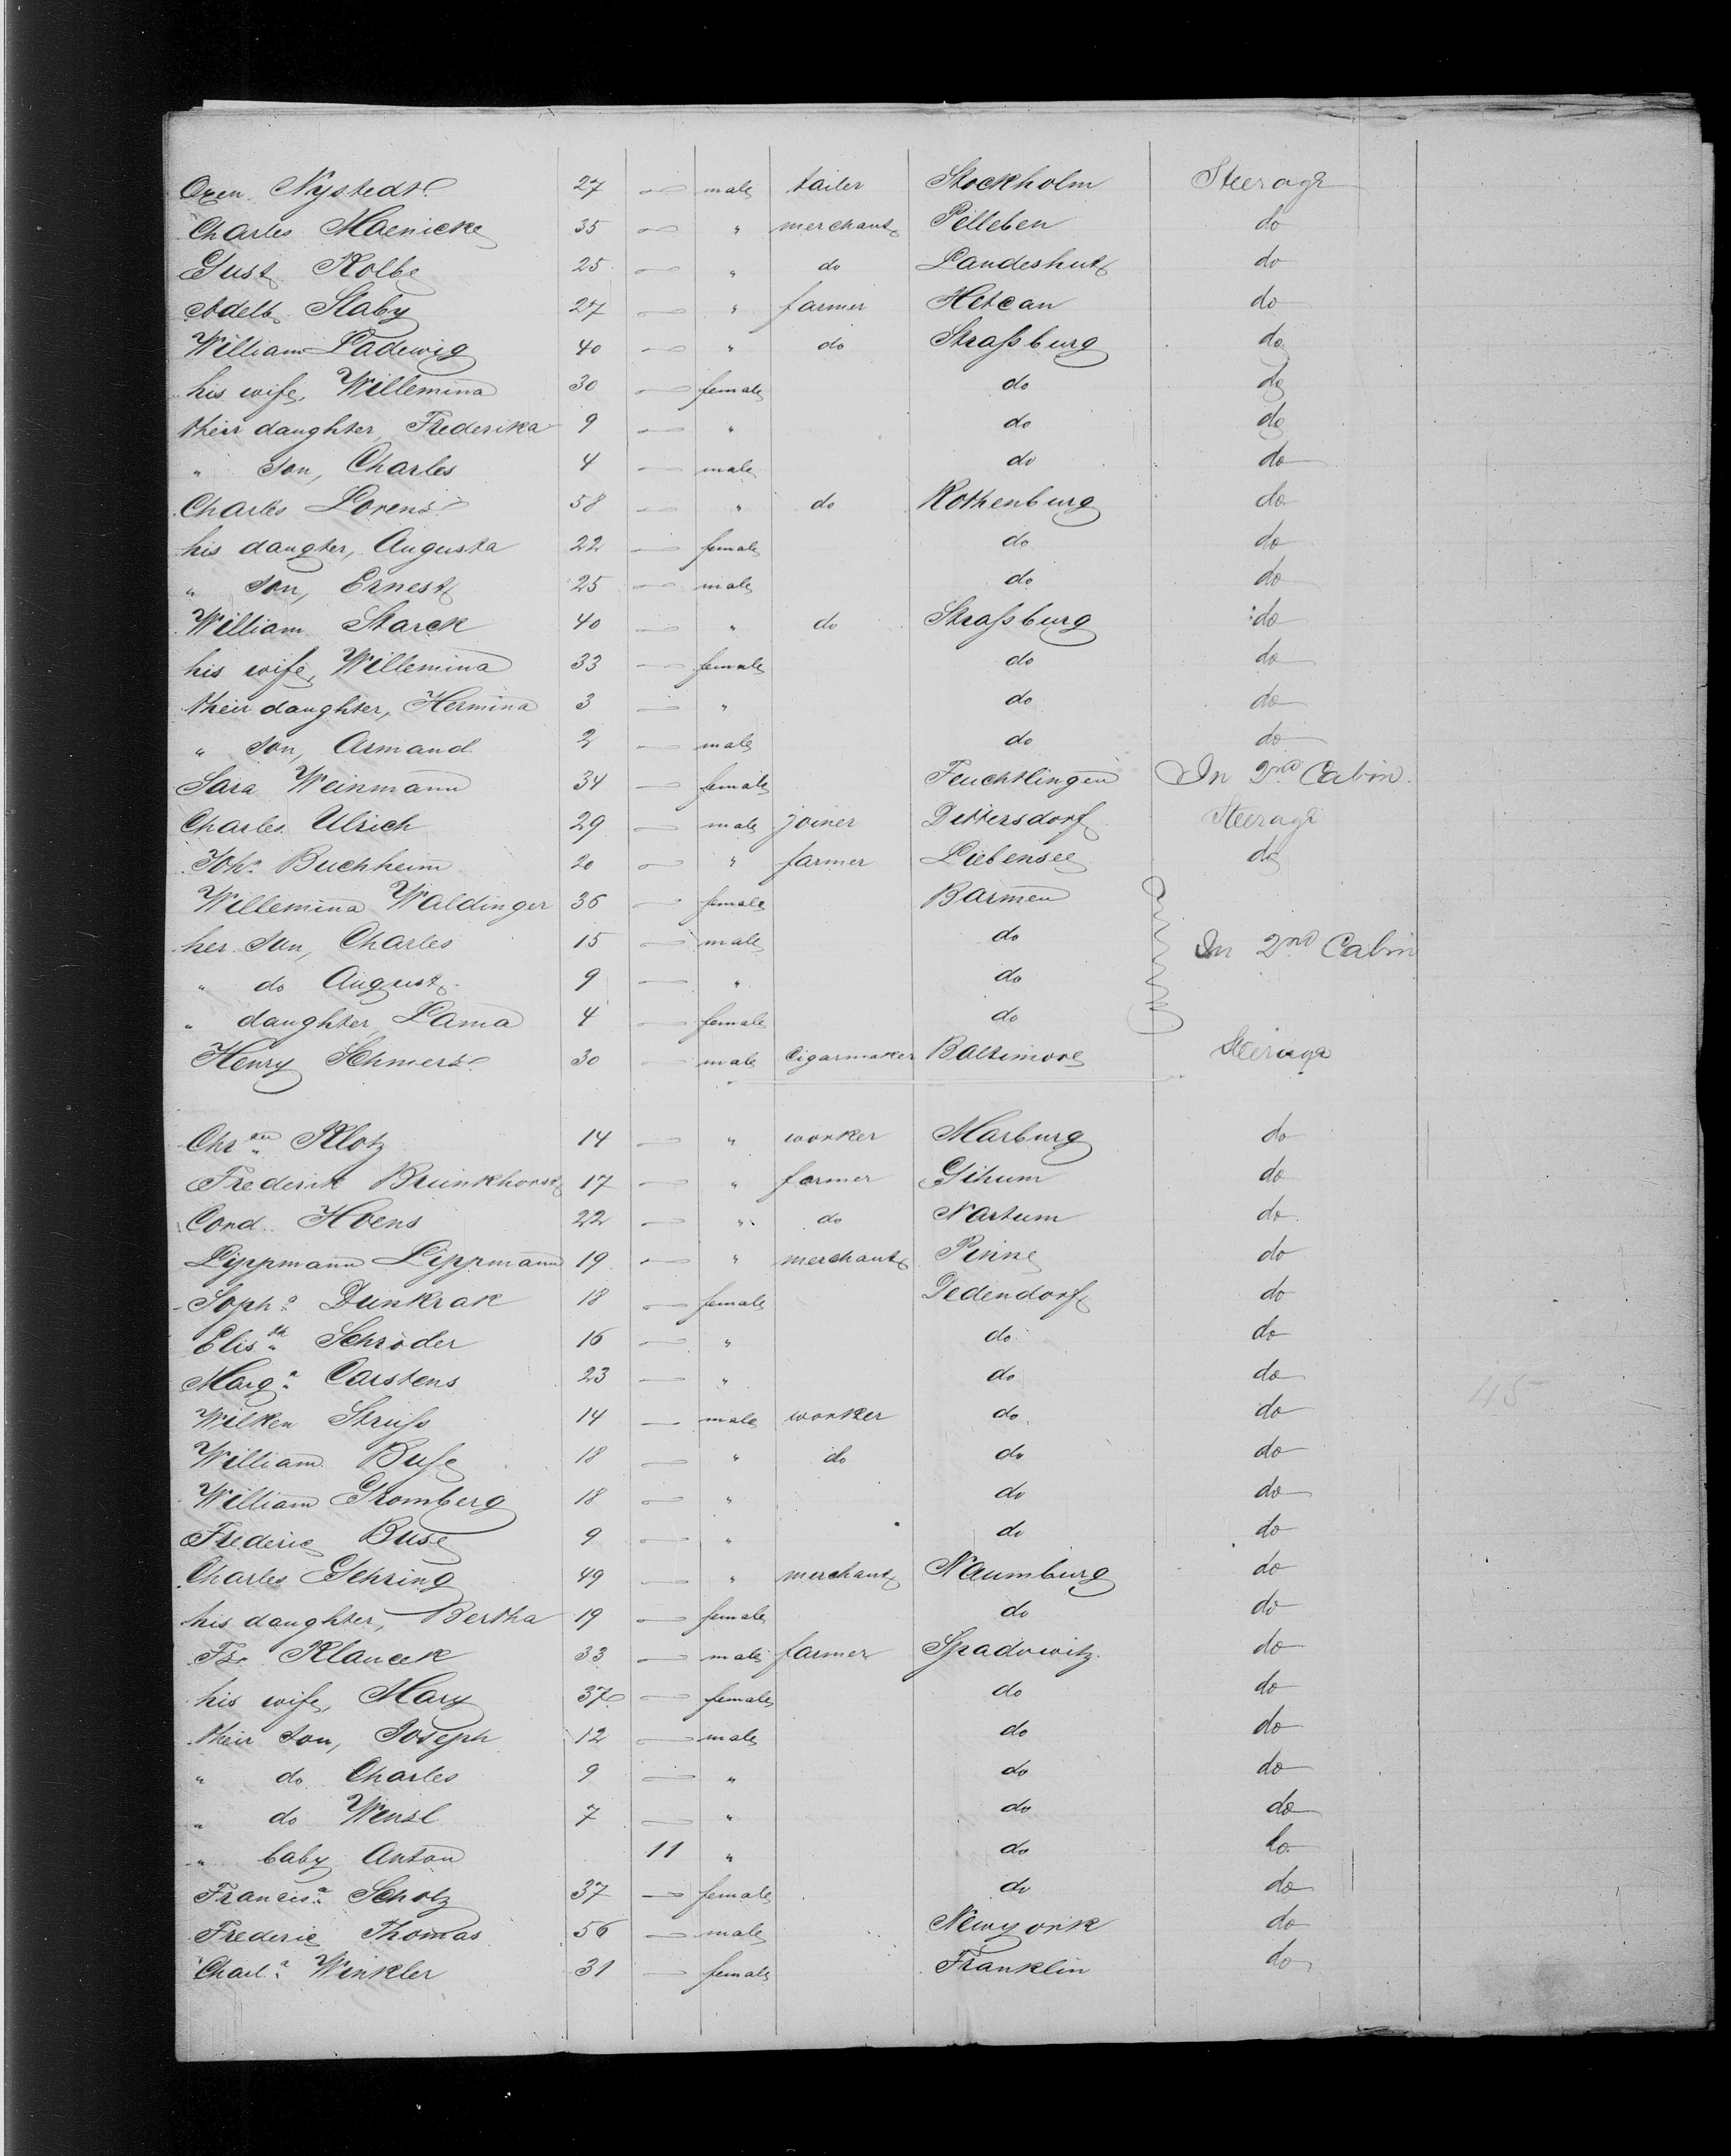 Oxen Nystedt 27 — male tailer Stockholm Steerage
Charles Maenicke 35 — " merchant Pelleben do
Gust. Kolbe 25 — " do Landeshut do
Adelb. Staby 27 — " farmer Hetcan do
William Ladewig 40 — " do Straßburg do
his wife, Willemina 30 — female do do
their daughter, Frederika 9 — " do do
" son, Charles 4 — male do do
Charles Lorenz 58 — " do Rothenburg do
his daugter, Augusta 22 — female do do
" son, Ernest 25 — male do do
William Starck 40 — " do Straßburg do
his wife, Willemina 33 — female do do
their daughter, Hermina 3 — " do do
" son, Armand 2 — male do do
Sara Weinmann 34 — female Feuchtlingen In 2nd Cabin
Charles Ulrich 29 — male joiner Dittersdorf Steerage
John Buchheim 20 — " farmer Liebensee do
Willemina Waldinger 36 — female Barmen
her son, Charles 15 — male do In 2nd Cabin
" do August 9 — " do
" daughter, Lama 4 — female do
Henry Schmerz 30 — male Cigarmaker Baltimore Steerage
Chr.an Klotz 14 — " worker Marburg do
Frederik Brunkhorst 17 — " farmer Gihum do
Cord Hoens 22 — " do Nartum do
Lippmann Lippmann 19 — " merchant Pinne do
Soph.a Dunkrak 18 — female Dedendorf do
Elis.th Schröder 16 — " do do
Marg.a Carstens 23 — " do do
Wilken Struß 14 — male worker do do
William Buse 18 — " do do do
William Gromberg 18 — " do do
Frederic Buse 9 — " do do
Charles Gehring 49 — " merchant Naumburg do
his daughter, Bertha 19 — female do do
Fr. Klaucek 33 — male farmer Spadowitz do
his wife, Mary 37 — female do do
their son, Joseph 12 — male do do
" do Charles 9 — " do do
" do Wenzl 7 — " do do
" baby Anton 11 " do do
Francis.a Scholz 37 — female do do
Frederic Thomas 56 — male Newyork do
Charl.a Winkler 31 — female Franklin do
45